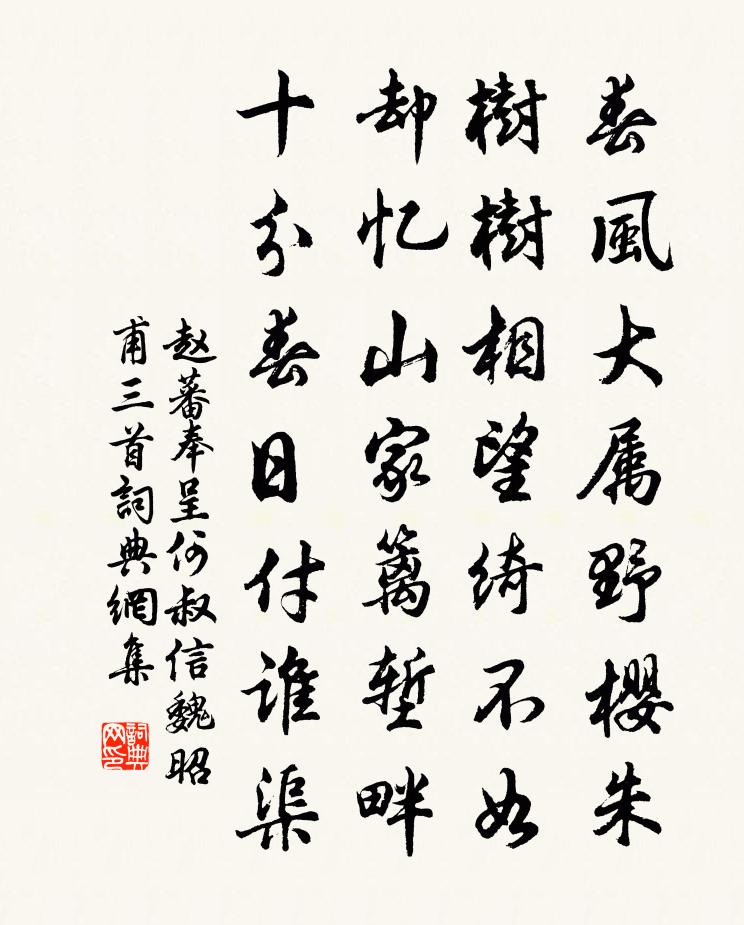 春風大属野櫻朱
樹樹相望綺不如
却忆山家籬堑畔
十分春日付谁渠
赵蕃奉呈何叔信魏昭
甫三首詞典網集
詞典网印